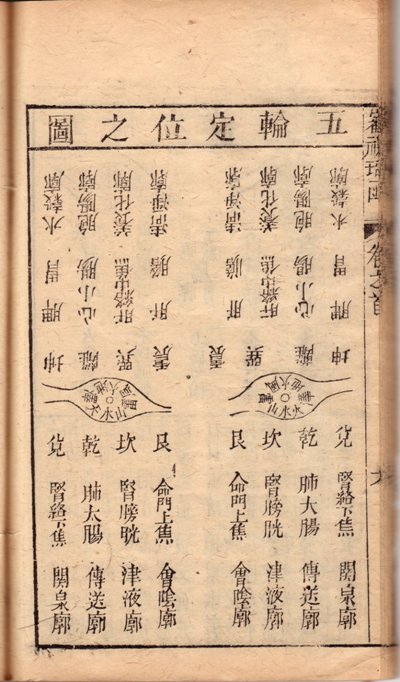 五輪定位之圖
坤 脾胃 水穀廓
離 心小腸 胞陽廓
巽 肝絡中焦 養化廓
震 肝膽 清淨廓
兌 腎絡下焦 關泉廓
乾 肺大腸 傳送廓
坎 腎膀胱 津液廓
艮 命門上焦 會陰廓
震 肝膽 清淨廓
巽 肝絡中焦 養化廓
離 心小腸 胞陽廓
坤 脾胃 水穀廓
艮 命門上焦 會陰廓
坎 腎膀胱 津液廓
乾 肺大腸 傳送廓
兌 腎絡下焦 關泉廓
卷之首